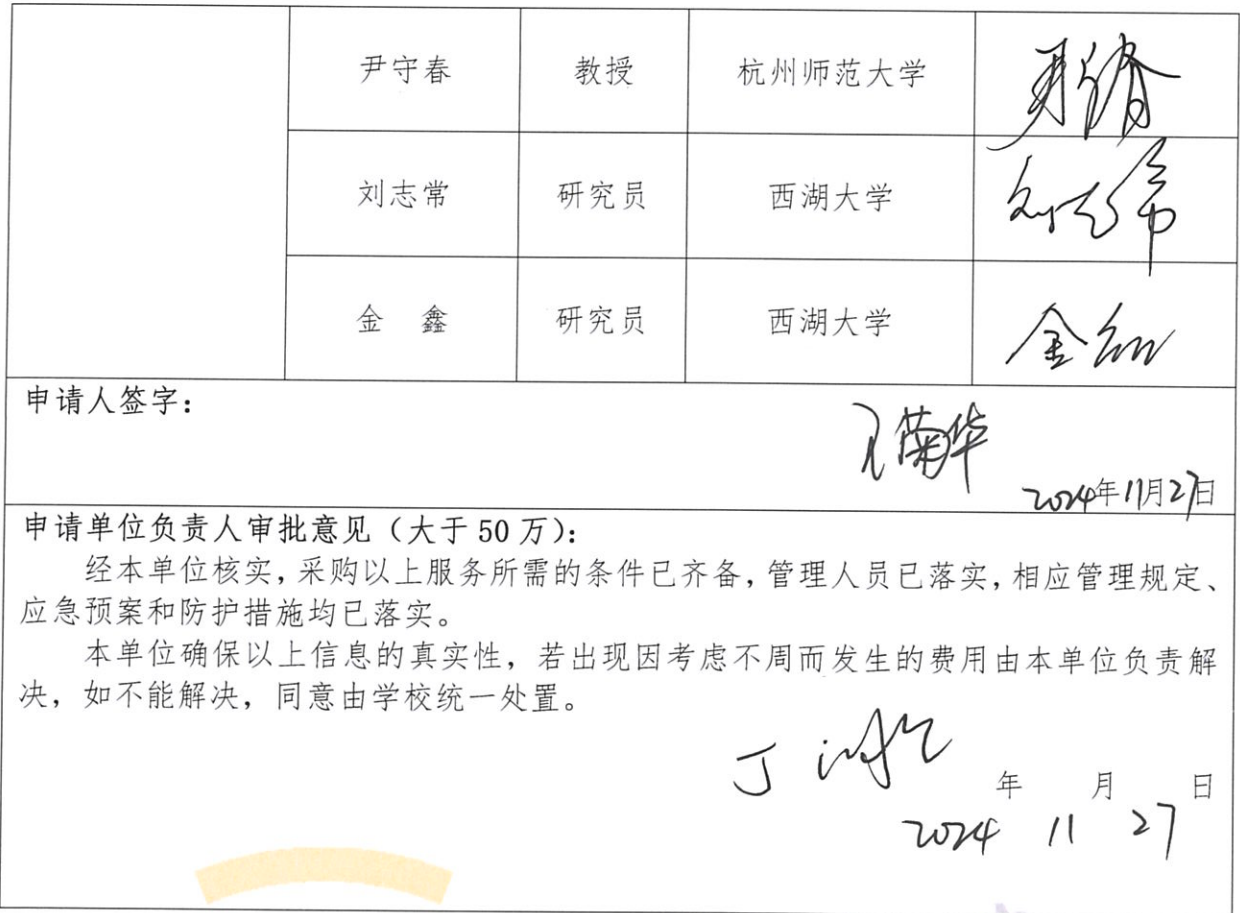 尹守春 教授 杭州师范大学 尹守春
刘志常 研究员 西湖大学 刘志常
金 鑫 研究员 西湖大学 金鑫
申请人签字：
菊华
2024年11月27日
申请单位负责人审批意见（大于50万）：
经本单位核实，采购以上服务所需的条件已齐备，管理人员已落实，相应管理规定、
应急预案和防护措施均已落实。
本单位确保以上信息的真实性，若出现因考虑不周而发生的费用由本单位负责解
决，如不能解决，同意由学校统一处置。
丁
年 月 日
2024 11 27